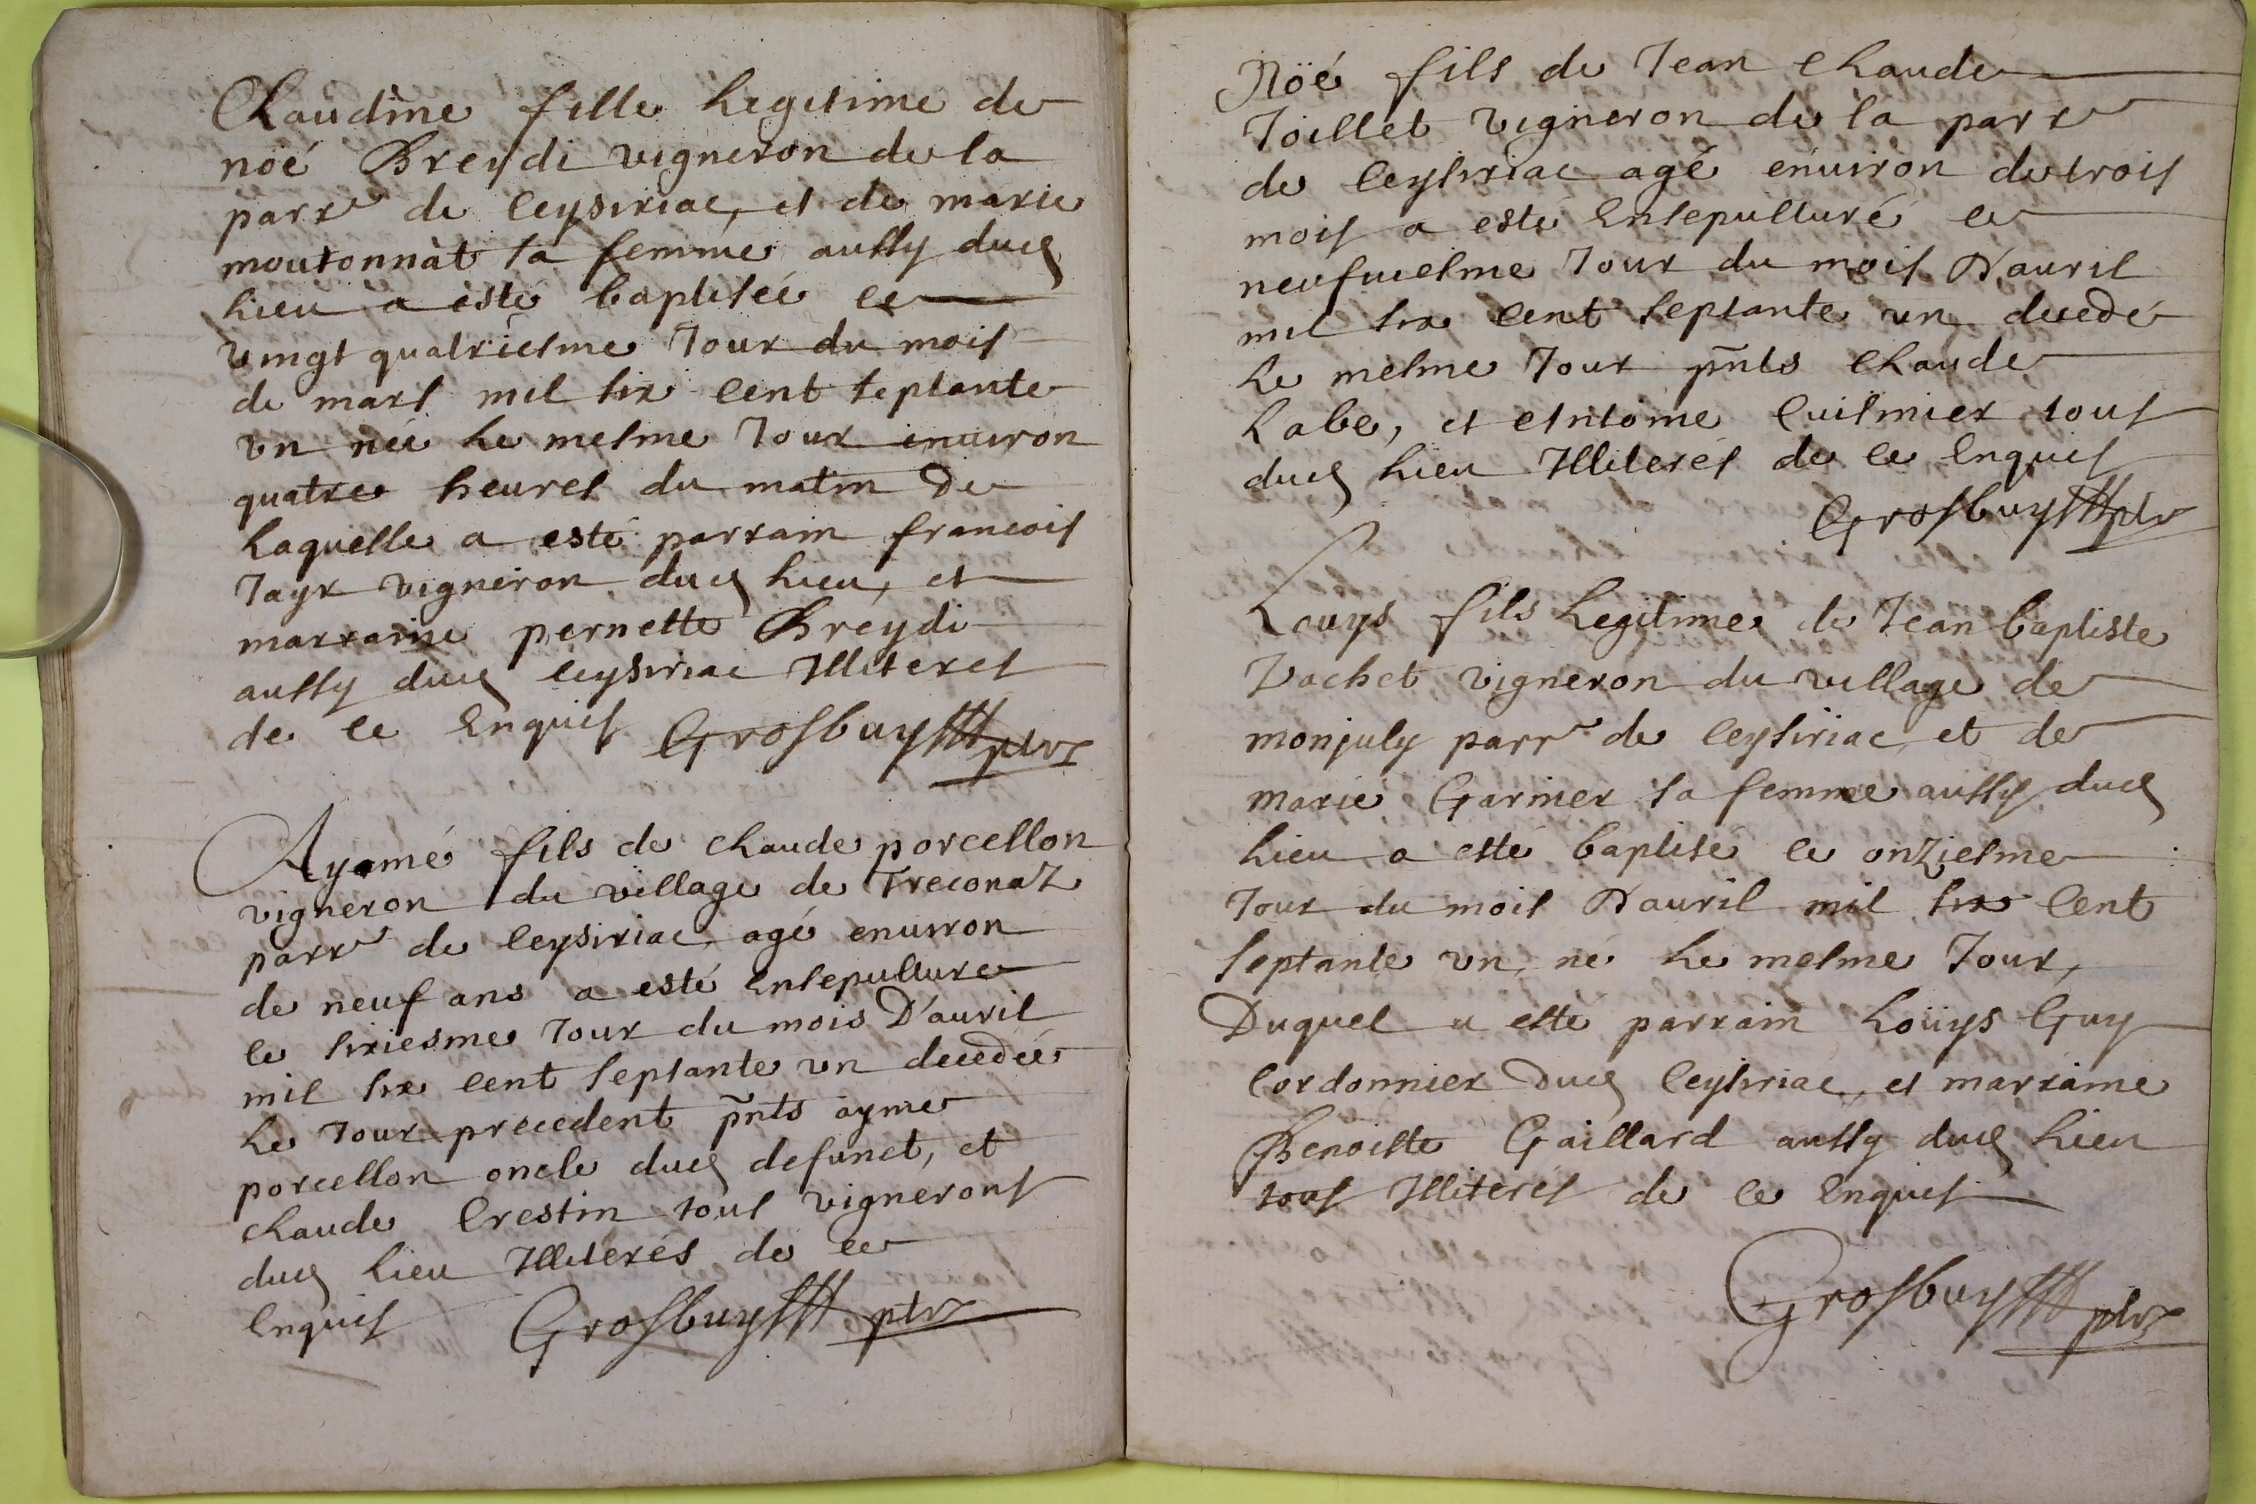 Claudine fille legitime de
noé Breydi vigneron de la
parr de Ceysiriac, et de marie
moutonnat sa femme aussy dud
lieu a esté baptisée ce
vingt quatriesme Jour du mois
de mars mil six cent septante
vn née le mesme Jour enuiron
quatre heures du matin De
laquelle a esté parrain francois
Jayr vigneron dud lieu, et
marraine pernette Breydi
aussy dud Ceysiriac Illiteres
de ce Enquis Grosbuy ptr
Aymé fils de claude porcellon
vigneron du village de Treconaz
parr de Ceysiriac, agé enuiron
de neuf ans a esté Ensepulture
ce sixiesme Jour du mois D'auril
mil six cent septante vn decedée
le Jour precedent pnts ayme
porcellon oncle dud defunct, et
claude Crestin tous vignerons
dud lieu Illiterés de ce
Enquis Grosbuy ptr
Nöé fils de Jean Claude
Joillet vigneron de la parr
de Ceysiriac agé enuiron de trois
mois a esté Ensepulturé ce
neufuiesme Jour du mois D'auril
mil six cent septante vn decedé
le mesme Jour pnts Claude
Labe, et Antoine Cuisinier tous
dud lieu Illiterés de ce Enquis
Grosbuy ptr
Louys fils legitime de Jean baptiste
Vachet vigneron du village de
monjuly parr de Ceysiriac et de
marie Garnier sa femme aussy dud
lieu a esté baptisé ce onziesme
Jour du mois D'auril mil six cent
septante vn, né le mesme Jour,
Duquel a esté parrain Loüys Guy
Cordonnier dud Ceysiriac, et marraine
Benoiste Gaillard aussy dud lieu
tous Illiterés de ce Enquis
Grosbuy ptr